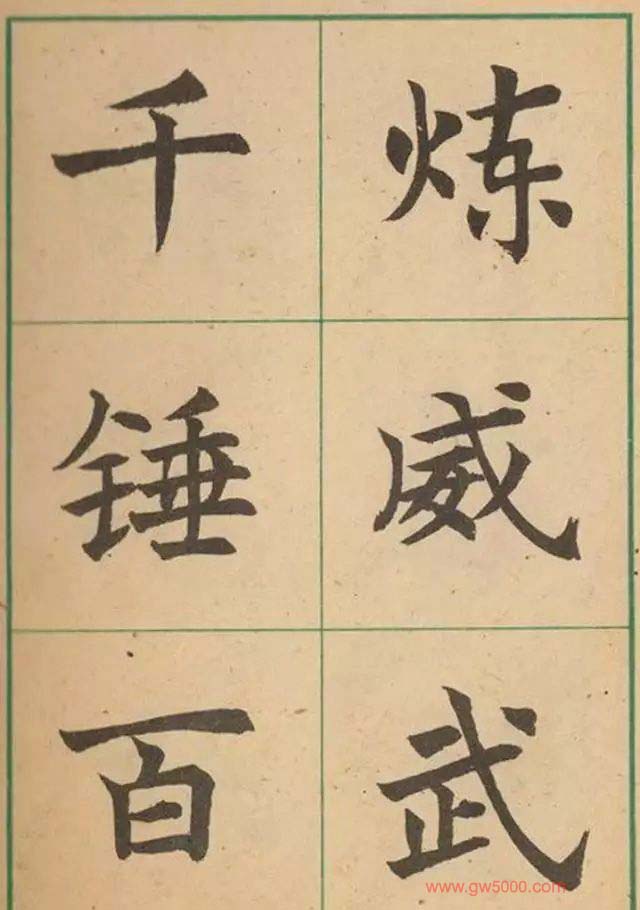 千锤百
炼威武
www.gw5000.com